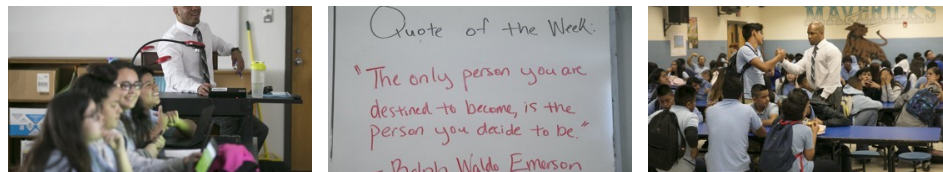 Quote of the Week:
"The only person you are
destined to become, is the
person you decide to be."
- Ralph Waldo Emerson
MAVERICKS